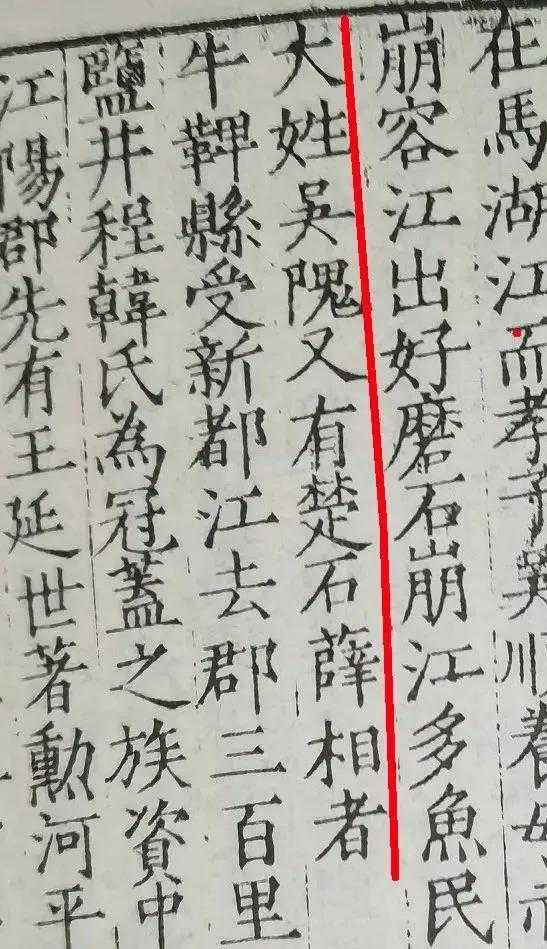 在馬湖江而孝子養
崩容江出好磨石崩江多魚民
大姓吳隗又有楚石薛相者
牛鞞縣受新都江去郡三百里
鹽井程韓氏為冠蓋之族資中
江陽郡先有王延世著勳河平